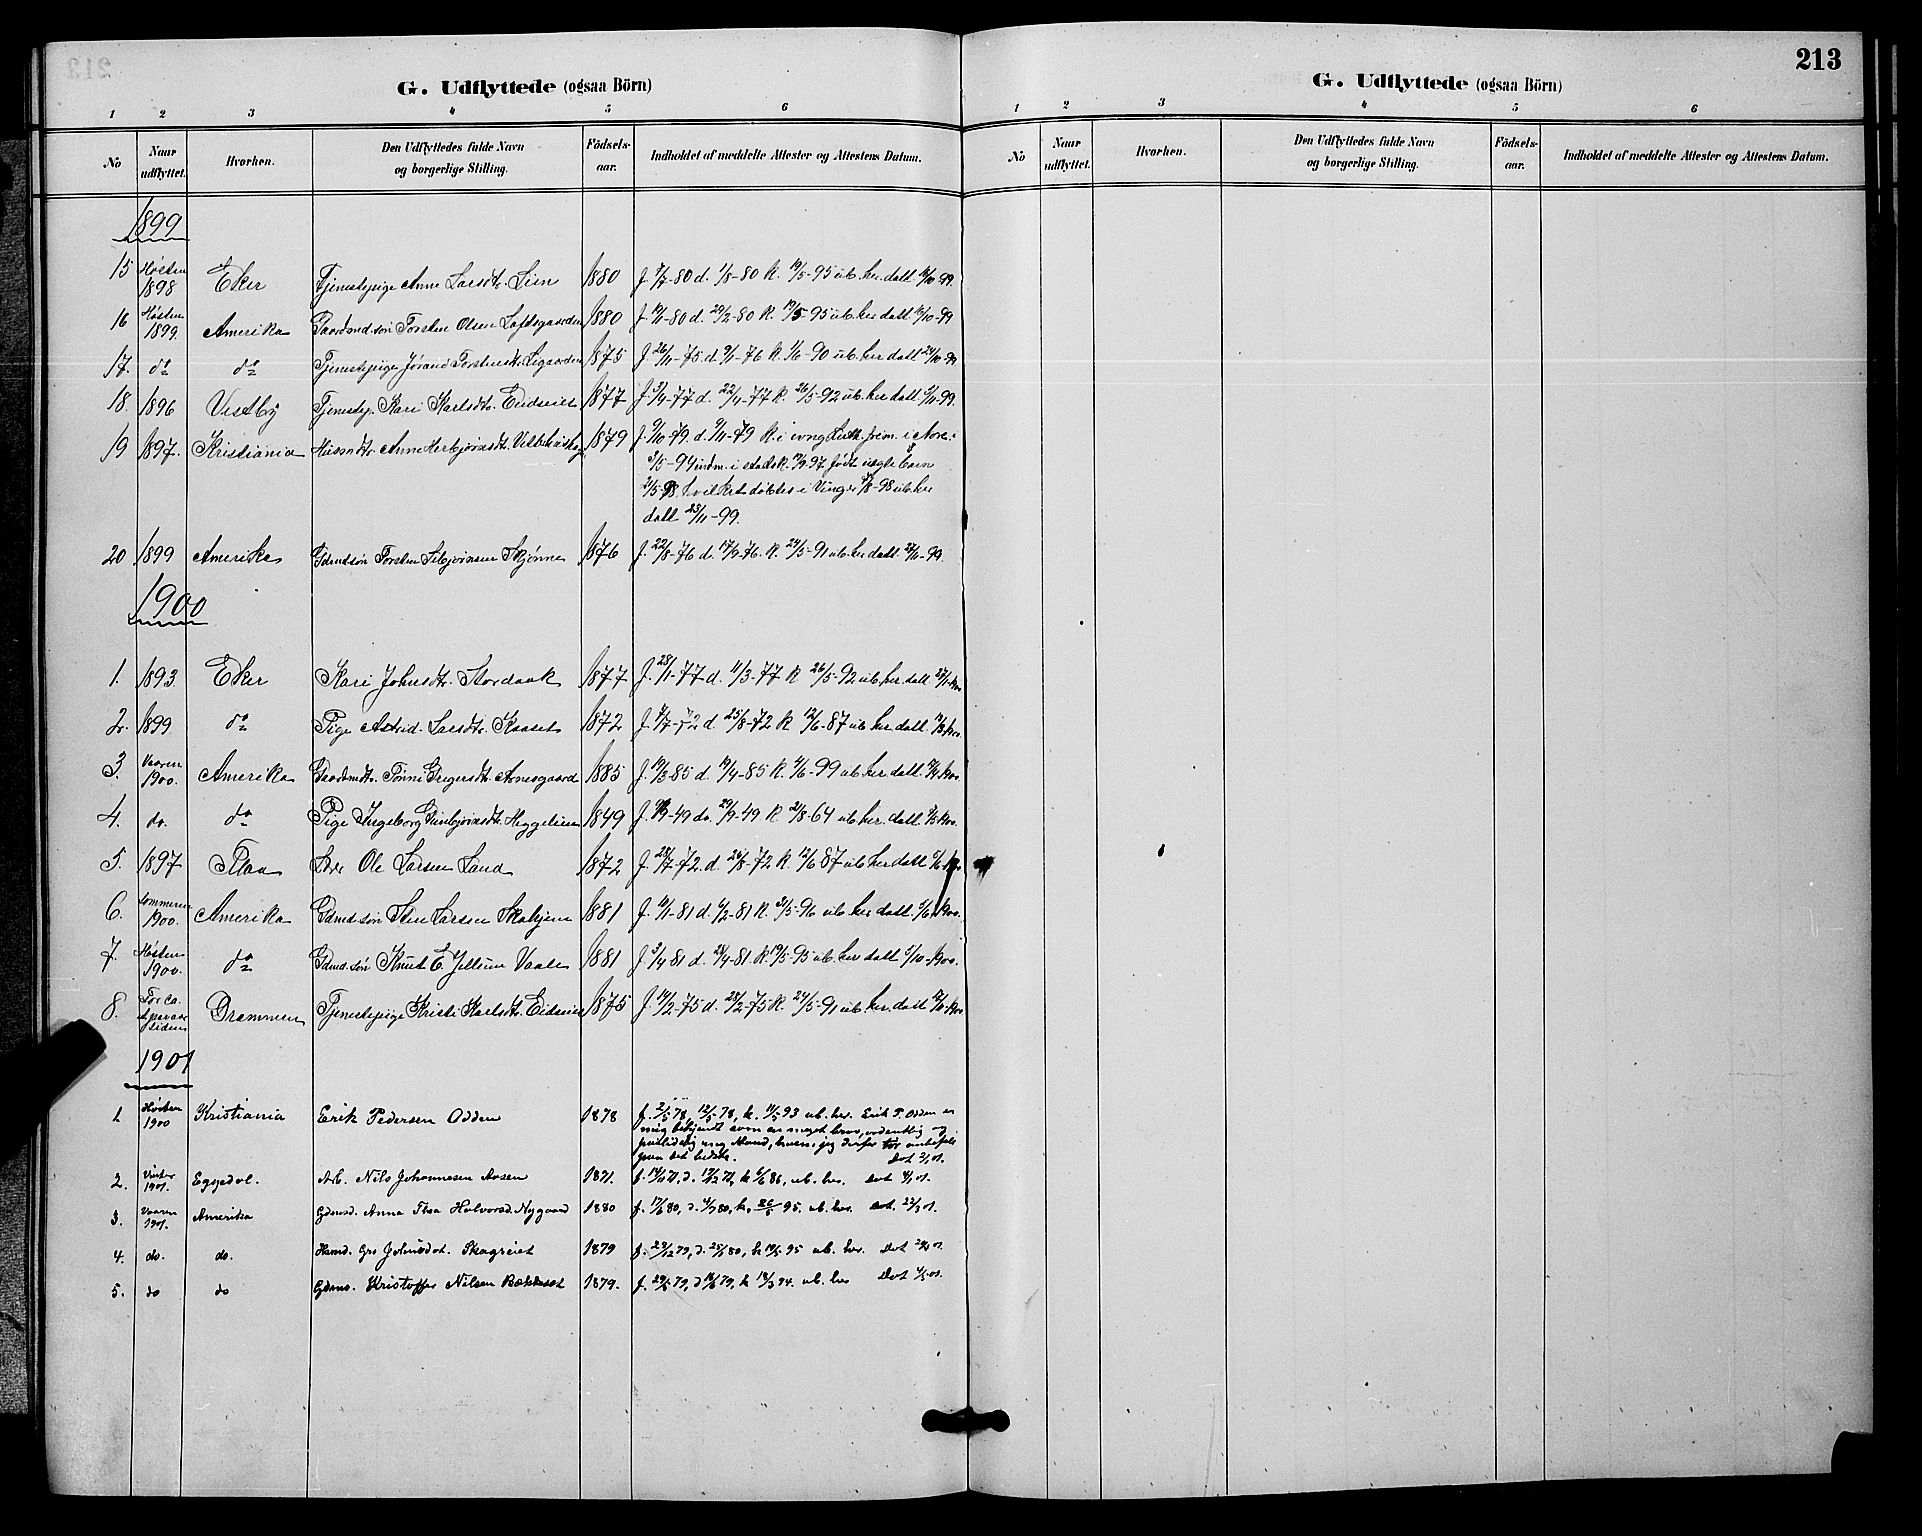 213
G. Udflyttede (ogsaa Börn)
1 2 3 4 5 6
No Naar udflyttet. Hvorhen. Den Udflyttedes fulde Navn og borgerlige Stilling. Födsels-aar. Indholdet af meddelte Attester og Attestens Datum.
1899
15 Høsten 1898 Eker Tjenestepige Anne Larsdtr. Lien 1880 f. 7/7-80 d. 1/8-80 k. 19/5-95 ub. her. datt.
16 Høsten 1899. Amerika Gaardmd.søn Torsten Olsen Loftsgaarden 1880 d. 29/2-80 k. 19/5-95 ub. her datt
17. do do Tjenestepige Jørand Torstensdtr. 1875 f. 26/11-75 d. 9/1-76 k. 1/6-90 ub. her datt.
18. 1896 Vestby Tjenestep. Kari Karlsdtr. Eidseiet 1877 f. 3/4-77 d. 22/4-77 k. 26/5-92 ub. her datt.
19 1897. Kristiania Husmdtr. Anne Herbjørnsdtr. 1879 f. 9/10-79. d. 9/11-79 k. i evng. Luth. frem. i Nore
3/5-94 indm. i stadsk. født uægte barn
2/5-98. hvilket døbtes i Vinger ub. her
datt. 23/11-99.
20 1899 Amerika Gdmdsøn Torsten Skjønne 1876 f. 22/8-76 d. 17/9-76. k. 24/5-91 ub. her datt.
1900
1. 1893. Eker Kari Johnsdtr. Stordaak 1877 f. 28/1-77 d. 11/3-77 k 26/5-92 ub. her. datt
2. 1899. do Pige Astrid Larsdtr. Kaaset 1872 d. 25/8-72 k 12/6-87 ub her datt.
3. Vaaren 1900. Amerika Gaardmdtr. Tønne Gregersdtr. Arnesgaard 1885 d. 19/4-85 k. 4/6-99 ub her datt
4. do. do Pige Ingeborg Heggelien 1849 d. 29/9-49 k 21/8-64 ub her. datt.
5. 1897 Flaa Ole Larsen Land 1872 f. 28/7-72. d. 26/8-72 k. 12/6 87 ub her datt
6. Sommeren 1900. Amerika Gdmdsøn Sten Larsen Skahjem 1881 k. 31/5-96 ub. her datt
7. Høsten 1900. do Gdmd.søn Knut E. Jellum Vaale 1881 f. 3/4 81 d. 28/4-81 k. 19/5-95 ub. her datt 5/10-1900.
8. For ca. siden Drammen Tjenestepige Kristi Karlsdtr. 1875 f. 14/2-75 d. 28/2-75 k. 24/5-91 ub. her. datt
1901
1. Høsten 1900 Kristiania Erik Pedersen Odden 1878 f. 2/5 78, 12/5 78, k. 11/5 93 ub. her. Erik P. Odden er
mig bekjendt som en meget brav, ordentlig og
paalidelig ung Mand, hvem jeg derfor tør anbefale
paa det bedste. Dat
2. Vinter 1901. Eggedal. Arb. Nils Johannesen Aasen 1871. ub. her. Dat
3. Vaaren 1901. Amerika Gdmsd. Anna Thea Halvorsd. Nygaard 1880 f. 17/6 80, k. 95. ub. her. Dat.
4. do. do. Hsmd. Gro Johnsdat. Skagreiet 1879 f. 23/12 79, k 19/5 95 ub. her. Dat
5. do do Gdms. Kristoffer Nilsen Bækkeset 1879. ub. her Dat
213
G. Udflyttede (ogsaa Börn)
1 2 3 4 5 6
No Naar udflyttet. Hvorhen. Den Udflyttedes fulde Navn og borgerlige Stilling. Födsels-aar. Indholdet af meddelte Attester og Attestens Datum.